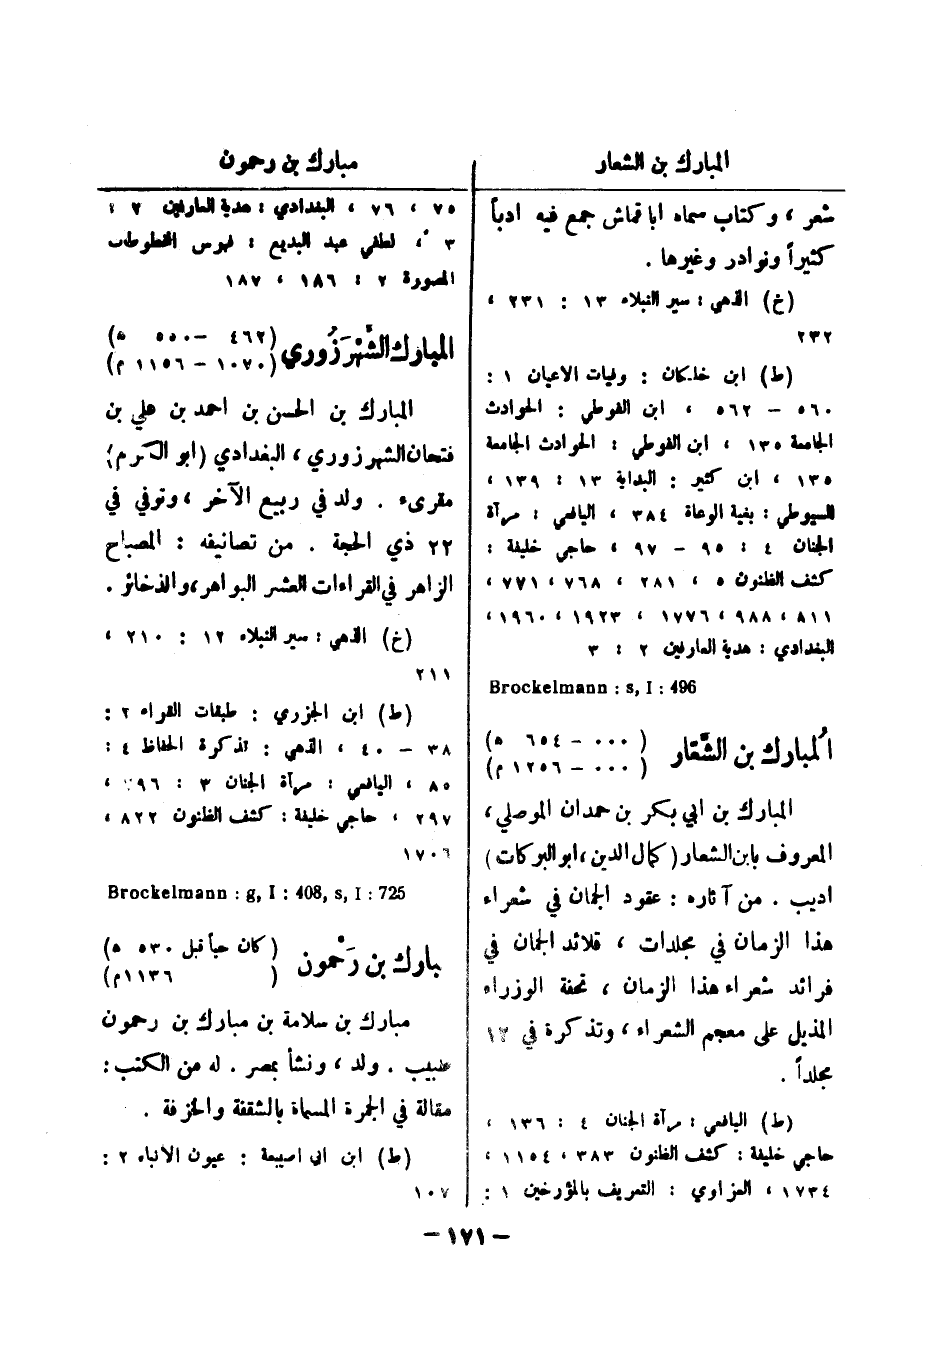 المبارك بن الشعار
مبارك بن رحمون
شعر ، وكتاب سماه ابا قماش جمع فيه ادباً
كثيراً ونوادر وغيرها .
(خ) الذهبي : سير النبلاء ١٣ : ٢٣١ ،
٢٣٢
(ط) ابن خلكان : وفيات الاعيان ١ :
٥٦٠ – ٥٦٢ ، ابن الفوطي : الحوادث
الجامعة ١٣٥ ، ابن الفوطي : الحوادث الجامعة
١٣٥ ، ابن كثير : البداية ١٣ : ١٣٩ ،
السيوطي : بغية الوعاة ٣٨٤ ، اليافعي : مرآة
الجنان ٤ : ٩٥ – ٩٧ ، حاجي خليفة :
كشف الظنون ٥ ، ٢٨١ ، ٧٦٨ ، ٧٧١ ،
٨١١ ، ٩٨٨ ، ١٧٧٦ ، ١٩٢٣ ، ١٩٦٠ ،
البغدادي : هدية العارفين ٢ : ٣
Brockelmann : s, I : 496
المبارك بن الشَّعَّار (٠٠٠ – ٦٥٤ ه)
(٠٠٠ – ١٢٥٦ م)
المبارك بن ابي بكر بن حمدان الموصلي ،
المعروف بابن الشعار (كمال الدين ، ابو البركات)
اديب . من آثاره : عقود الجمان في شعراء
هذا الزمان في مجلدات ، قلائد الجمان في
فرائد شعراء هذا الزمان ، تحفة الوزراء
المذيل على معجم الشعراء ، وتذكرة في ١٢
مجلداً .
(ط) اليافعي : مرآة الجنان ٤ : ١٣٦ ،
حاجي خليفة : كشف الظنون ٣٨٣ ، ١١٥٤ ،
١٧٣٤ ، العزاوي : التعريف بالمؤرخين ١ :
٧٥ ، ٧٦ ، البغدادي : هدية العارفين ٢ :
٣ ، لطفي عبد البديع : فهرس المخطوطات
المصورة ٢ : ١٨٦ ، ١٨٧
المبارك الشَّهْرَزُوري (٤٦٢ – ٥٥٠ ه)
(١٠٧٠ – ١١٥٦ م)
المبارك بن الحسن بن احمد بن علي بن
فتحان الشهرزوري ، البغدادي (ابو الكرم)
مقرىء . ولد في ربيع الآخر ، وتوفي في
٢٢ ذي الحجة . من تصانيفه : المصباح
الزاهر في القراءات العشر البواهر ، والذخائر .
(خ) الذهبي : سير النبلاء ١٢ : ٢١٠ ،
٢١١
(ط) ابن الجزري : طبقات القراء ٢ :
٣٨ – ٤٠ ، الذهبي : تذكرة الحفاظ ٤ :
٨٥ ، اليافعي : مرآة الجنان ٣ :
٢٩٧ ، حاجي خليفة : كشف الظنون ٨٢٢ ،
١٧٠٦
Brockelmann : g, I : 408, s, I : 725
مبارك بن رَحْمون (كان حياً قبل ٥٣٠ ه)
(١١٣٦ م)
مبارك بن سلامة بن مبارك بن رحمون
طبيب . ولد ، ونشأ بمصر . له من الكتب :
مقالة في الجمرة المسماة بالشقفة والخزفة .
(ط) ابن ابي اصيبعة : عيون الانباء ٢ :
١٠٧
– ١٧١ –